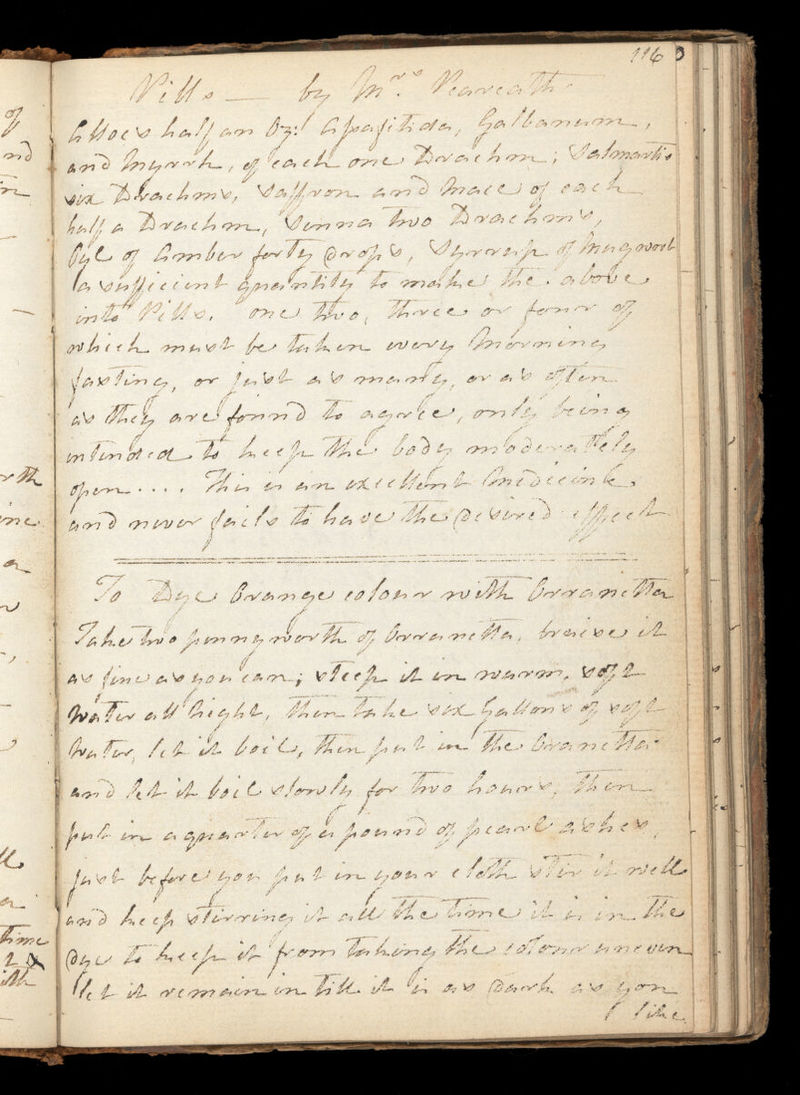 116
Pills — by Mrs. Peareath
Alloe's half an Oz: Asafitida, Galbanum,
and Myrrh, of each one Drachm; Salmartis
six Drachms, Saffron and Mace of each
half a Drachm, Senna two Drachms,
Oyl of Amber forty Drops, Syrrup of Mugwort
a sufficient quantity to make the above
into Pills. one two, three or four of
which must be taken every Morning
fasting, or just as many, or as often
as they are found to agree, only being
intended to keep the body moderately
open.... This is an excellent Medicine
and never fails to have the desired effect
To Dye Orange colour with Orranetta
Take two pennyworth of Orranetta, braise it
as fine as you can; steep it in warm, soft
Water all Night, then take six Gallons of soft
Water, let it boil, then put in the Oranetta
and let it boil slowly for two hours, then
put in a quarter of a pound of pearl ashes,
just before you put in your cloth stir it well
and keep stirring it all the time it is in the
dye to keep it from taking the colour uneven
let it remain in till it is as Dark as you
like
of
nd
rth
ine
a
time
ith